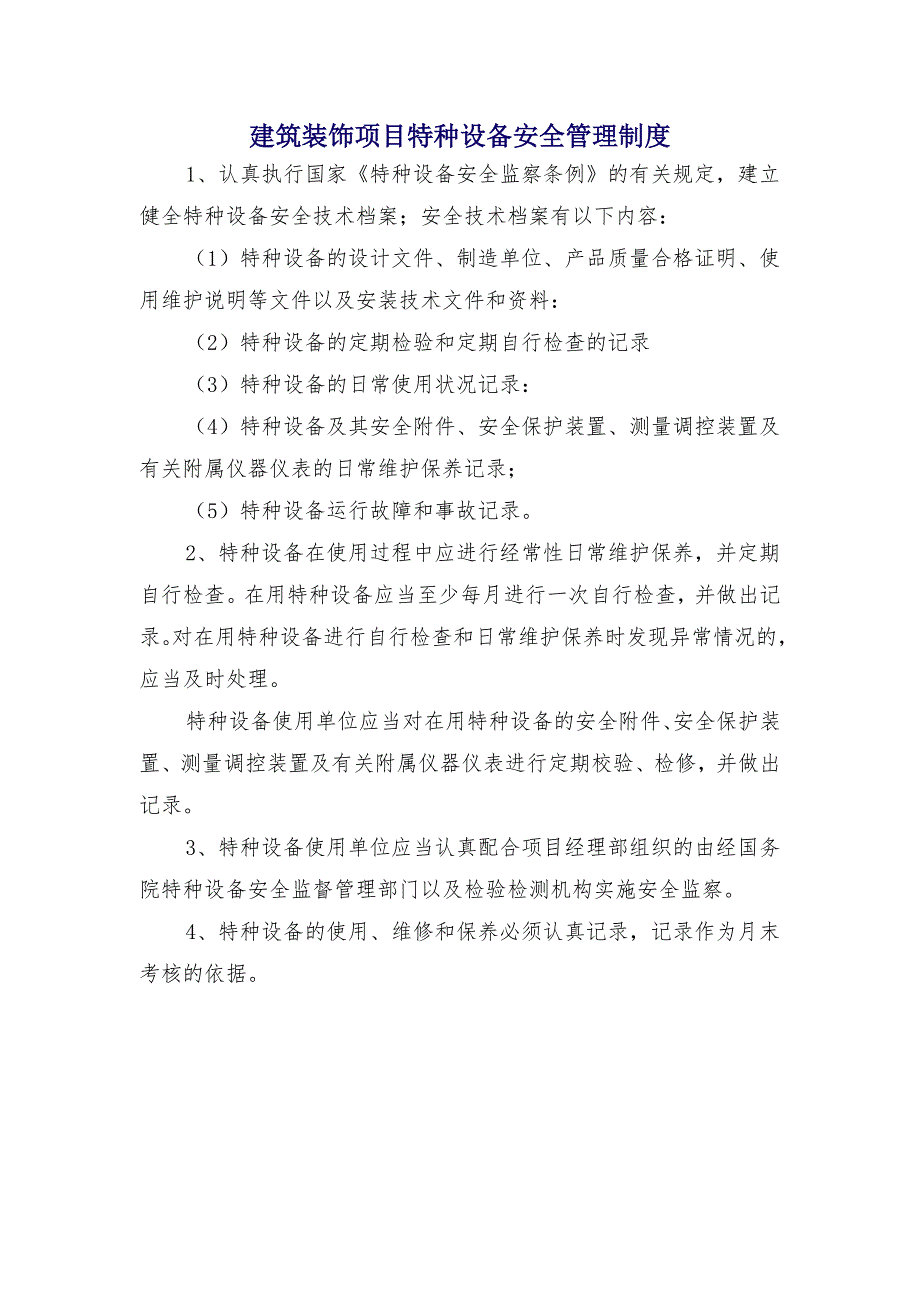 建筑装饰项目特种设备安全管理制度
1、认真执行国家《特种设备安全监察条例》的有关规定，建立
健全特种设备安全技术档案；安全技术档案有以下内容：
（1）特种设备的设计文件、制造单位、产品质量合格证明、使
用维护说明等文件以及安装技术文件和资料：
（2）特种设备的定期检验和定期自行检查的记录
（3）特种设备的日常使用状况记录：
（4）特种设备及其安全附件、安全保护装置、测量调控装置及
有关附属仪器仪表的日常维护保养记录；
（5）特种设备运行故障和事故记录。
2、特种设备在使用过程中应进行经常性日常维护保养，并定期
自行检查。在用特种设备应当至少每月进行一次自行检查，并做出记
录。对在用特种设备进行自行检查和日常维护保养时发现异常情况的，
应当及时处理。
特种设备使用单位应当对在用特种设备的安全附件、安全保护装
置、测量调控装置及有关附属仪器仪表进行定期校验、检修，并做出
记录。
3、特种设备使用单位应当认真配合项目经理部组织的由经国务
院特种设备安全监督管理部门以及检验检测机构实施安全监察。
4、特种设备的使用、维修和保养必须认真记录，记录作为月末
考核的依据。